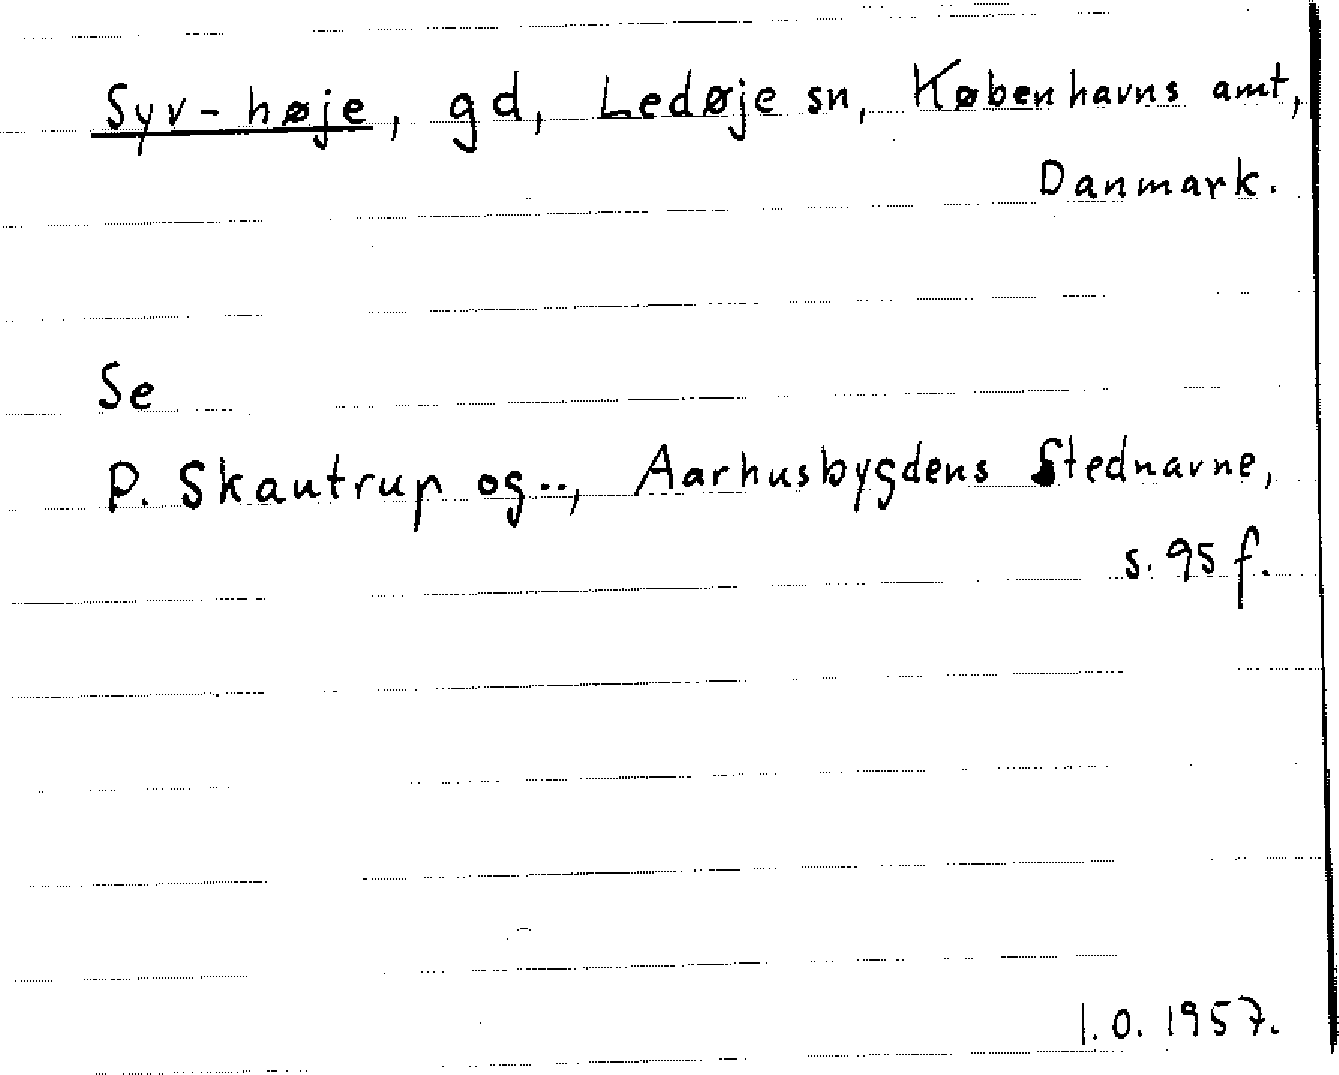 Syv-høje, gd, Ledøje sn, Københavns amt,
Danmark.
Se
P. Skautrup og.., Aarhusbygdens Stednavne,
s. 95 f.
I.O. 1957.